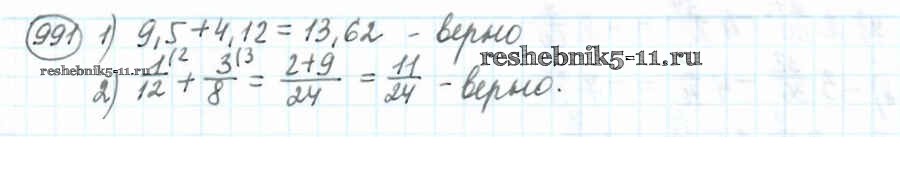 991 1) 9,5 + 4,12 = 13,62 - верно
reshebnik5-11.ru
reshebnik5-11.ru
2) 1/12 (2 + 3/8 (3 = 2+9/24 = 11/24 - верно.